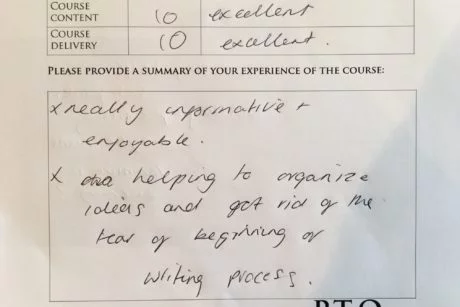 COURSE CONTENT 10 excellent
COURSE DELIVERY 10 excellent.
PLEASE PROVIDE A SUMMARY OF YOUR EXPERIENCE OF THE COURSE:
x really informative +
enjoyable.
x helping to organize
ideas and got rid of the
fear of beginning of
writing process.
P.T.O